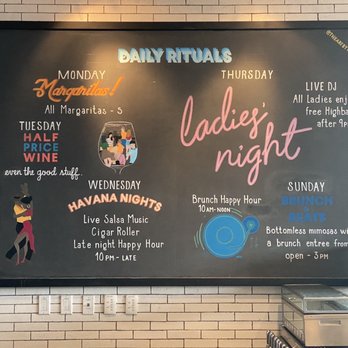 DAILY RITUALS
MONDAY
Margaritas!
All Margaritas - 5
TUESDAY
HALF
PRICE
WINE
even the good stuff..
WEDNESDAY
HAVANA NIGHTS
Live Salsa Music
Cigar Roller
Late night Happy Hour
10 PM - LATE
THURSDAY
ladies'
night
LIVE DJ
All Ladies enj
free Highba
after 9p
Brunch Happy Hour
10 AM - NOON
SUNDAY
BRUNCH
&
BEATS
Bottomless mimosas wi
a brunch entree from
open - 3PM